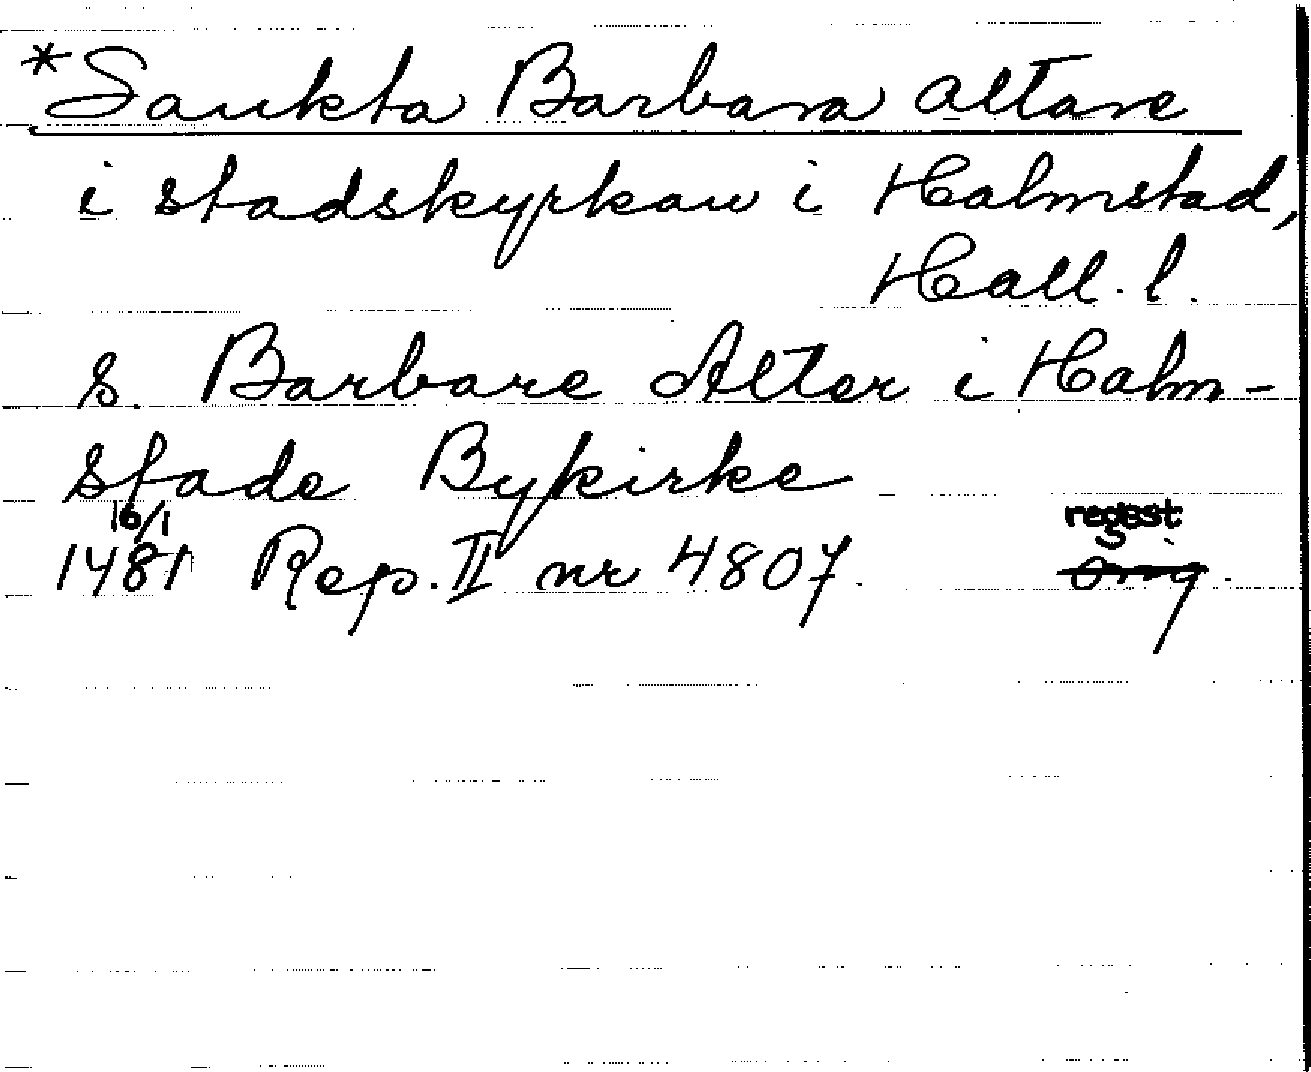 *Sankta Barbara altare
i stadskyrkan i Halmstad,
Hall. l.
S. Barbare Alter i Halm-
stade Bykirke
16/1 regest
1481 Rep. II nr 4807. Orig.